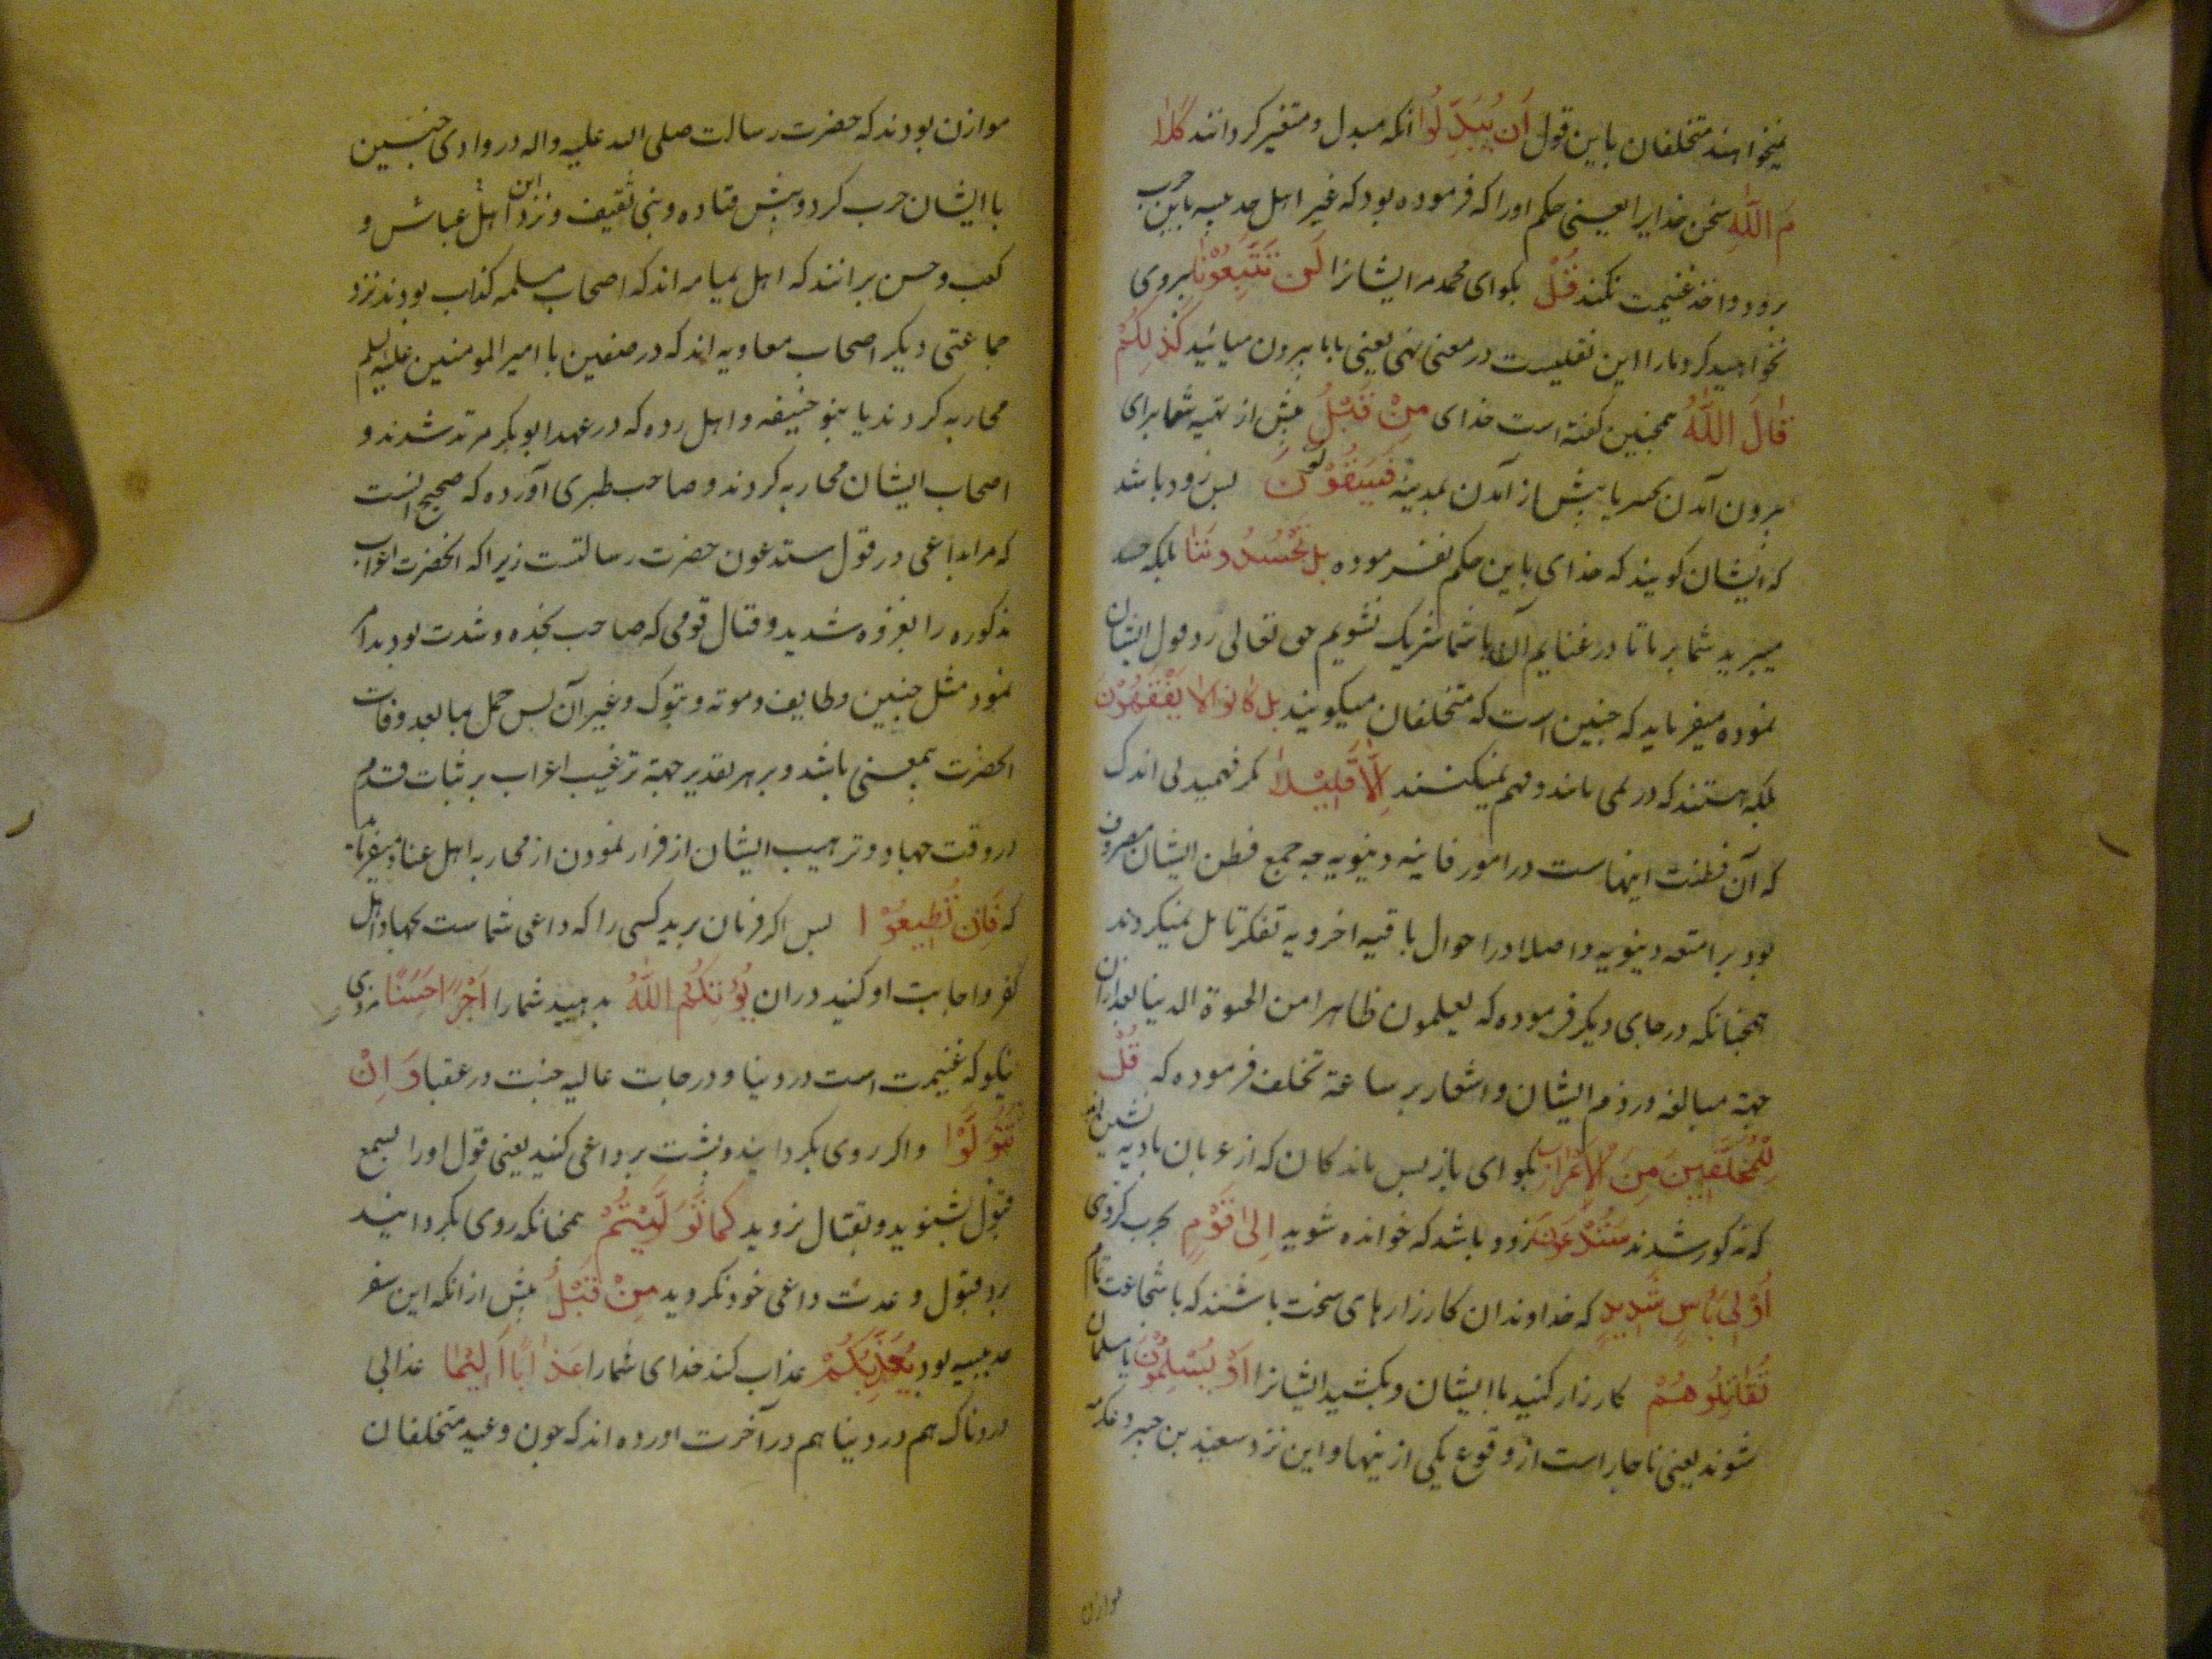 میخواهند متخلفان باین قول اَن یُبَدِّلُوا انکه مبدل و متغیر کردانند کَلَا
مَ اللّٰهِ سخن خدایرا یعنی حکم اورا که فرموده بود که غیر اهل حدیبیه باین حرب
برود واخذ غنیمت نکنند قُلْ بکو ای محمد مر ایشانرا لَن تَتَّبِعُوْنَا پیروی
نخواهید کرد مارا این نفیست در معنی نهی یعنی با ما بیرون میائید کَذٰلِکُمْ
قالَ اللّٰهُ همچنین کفته است خدای مِنْ قَبْلُ پیش از تهیه شما برای
بیرون آمدن بخیبر یا پیش از آمدن بمدینه فَسَیَقُوْلُوْنَ پس زود باشد
که ایشان کویند که خدای باین حکم نفرموده بل تَحْسُدُونَنَا بلکه حسد
میبرید شما بر ما تا در غنایم آن با شما شریک نشویم حق تعالی رد قول ایشان
نموده میفرماید که چنین است که متخلفان میکویند بل کانوا لا یَفْقَهُوْنَ
بلکه هستند که در نمی یابند و فهم نمیکنند اِلَّا قَلِیْلًا مکر فهمیدنی اندک
که آن فطنت اینهاست در امور فانیه دنیویه چه جمع فطن ایشان مصروف
بود بر امتعه دنیویه و اصلا در احوال باقیه اخرویه تفکر تامل نمیکردند
همچنانکه در جای دیکر فرموده که یعلمون ظاهرا من الحیوة الدنیا بعد ازان
جهة مبالغه در ذم ایشان و اشعار بر ساعة تخلف فرموده که قُلْ
لِلْمُخَلَّفِیْنَ مِنَ الْاَعْرَابِ بکو ای باز پس ماندکان که از عربان بادیه نشین اند
که مذکور شدند سَتُدْعَوْنَ زود باشد که خوانده شوید اِلیٰ قَوْمٍ بحرب کروهی
اُوْلِی بَاْسٍ شَدِیدٍ که خداوندان کارزارهای سخت باشند که با شجاعت تمام
تُقَاتِلُوهُمْ کارزار کنید با ایشان و بکشید ایشانرا اَوْ یُسْلِمُوْنَ یا مسلمان
شوند یعنی ناچار است از وقوع یکی از ینها و این نزد سعید بن جبیر و عکرمه
هوازن
هوازن بودند که حضرت رسالت صلی الله علیه واله در وادی حنین
با ایشان حرب کرد و پیش قتاده و بنی ثقیف و نزد ابن عباس و
کعب و حسن برانند که اهل یمامه اند که اصحاب مسلمه کذاب بودند نزد
جماعتی دیکر اصحاب معاویه اند که در صفین با امیر المومنین علیه السلم
محاربه کردند یا بنو حنیفه و اهل رده که در عهد ابوبکر مرتد شدند و
اصحاب ایشان محاربه کردند و صاحب طبری آورده که صحیح انست
که مراد بداعی در قول ستدعون حضرت رسالتست زیرا که انحضرت اعراب
مذکوره را بغزوه شدید و قتال قومی که صاحب نجده و شدت بود بدا م
نمود مثل حنین و طایف و موته و تبوک و غیر آن پس حمل بما بعد وفات
انحضرت بمعنی باشد و بر هر تقدیر جهة ترغیب اعراب بر ثبات قدم
در وقت جهاد و ترهیب ایشان از فرار نمودن از محاربه اهل عناد میفرماید
که فَاِن تُطِیعُوْا پس اکر فرمان برید کسی را که داعی شماست بجهاد اهل
کفر و اجابت او کنید دران یُوْتِکُمُ اللّٰهُ بدهید شمارا اَجْرًا حَسَنًا مزدی
نیکو که غنیمت است در دنیا و درجات عالیه جنت در عقبا وَ اِنْ
تَتَوَلَّوْا و اکر روی بکردانید و پشت بر داعی کنید یعنی قول اورا بسمع
قبول نشنوید و بقتال نروید کَما تَوَلَّیْتُمْ همچنانکه روی بکردانیدید
برد قبول وعدت داعی خود نکردید مِنْ قَبْلُ پیش از انکه این سفر
حدیبیه بود یُعَذِّبْکُمْ عذاب کند خدای شمارا عَذَابًا اَلِیْمًا عذابی
دردناک هم در دنیا هم در آخرت اورده اند که چون وعید متخلفان